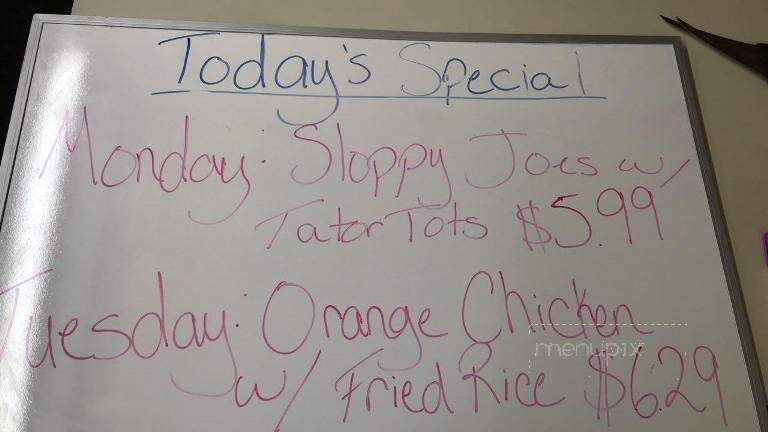 Today's Special
Monday: Sloppy Joes w/
Tator Tots $5.99
Tuesday: Orange Chicken
menupix
w/ Fried Rice $6.29